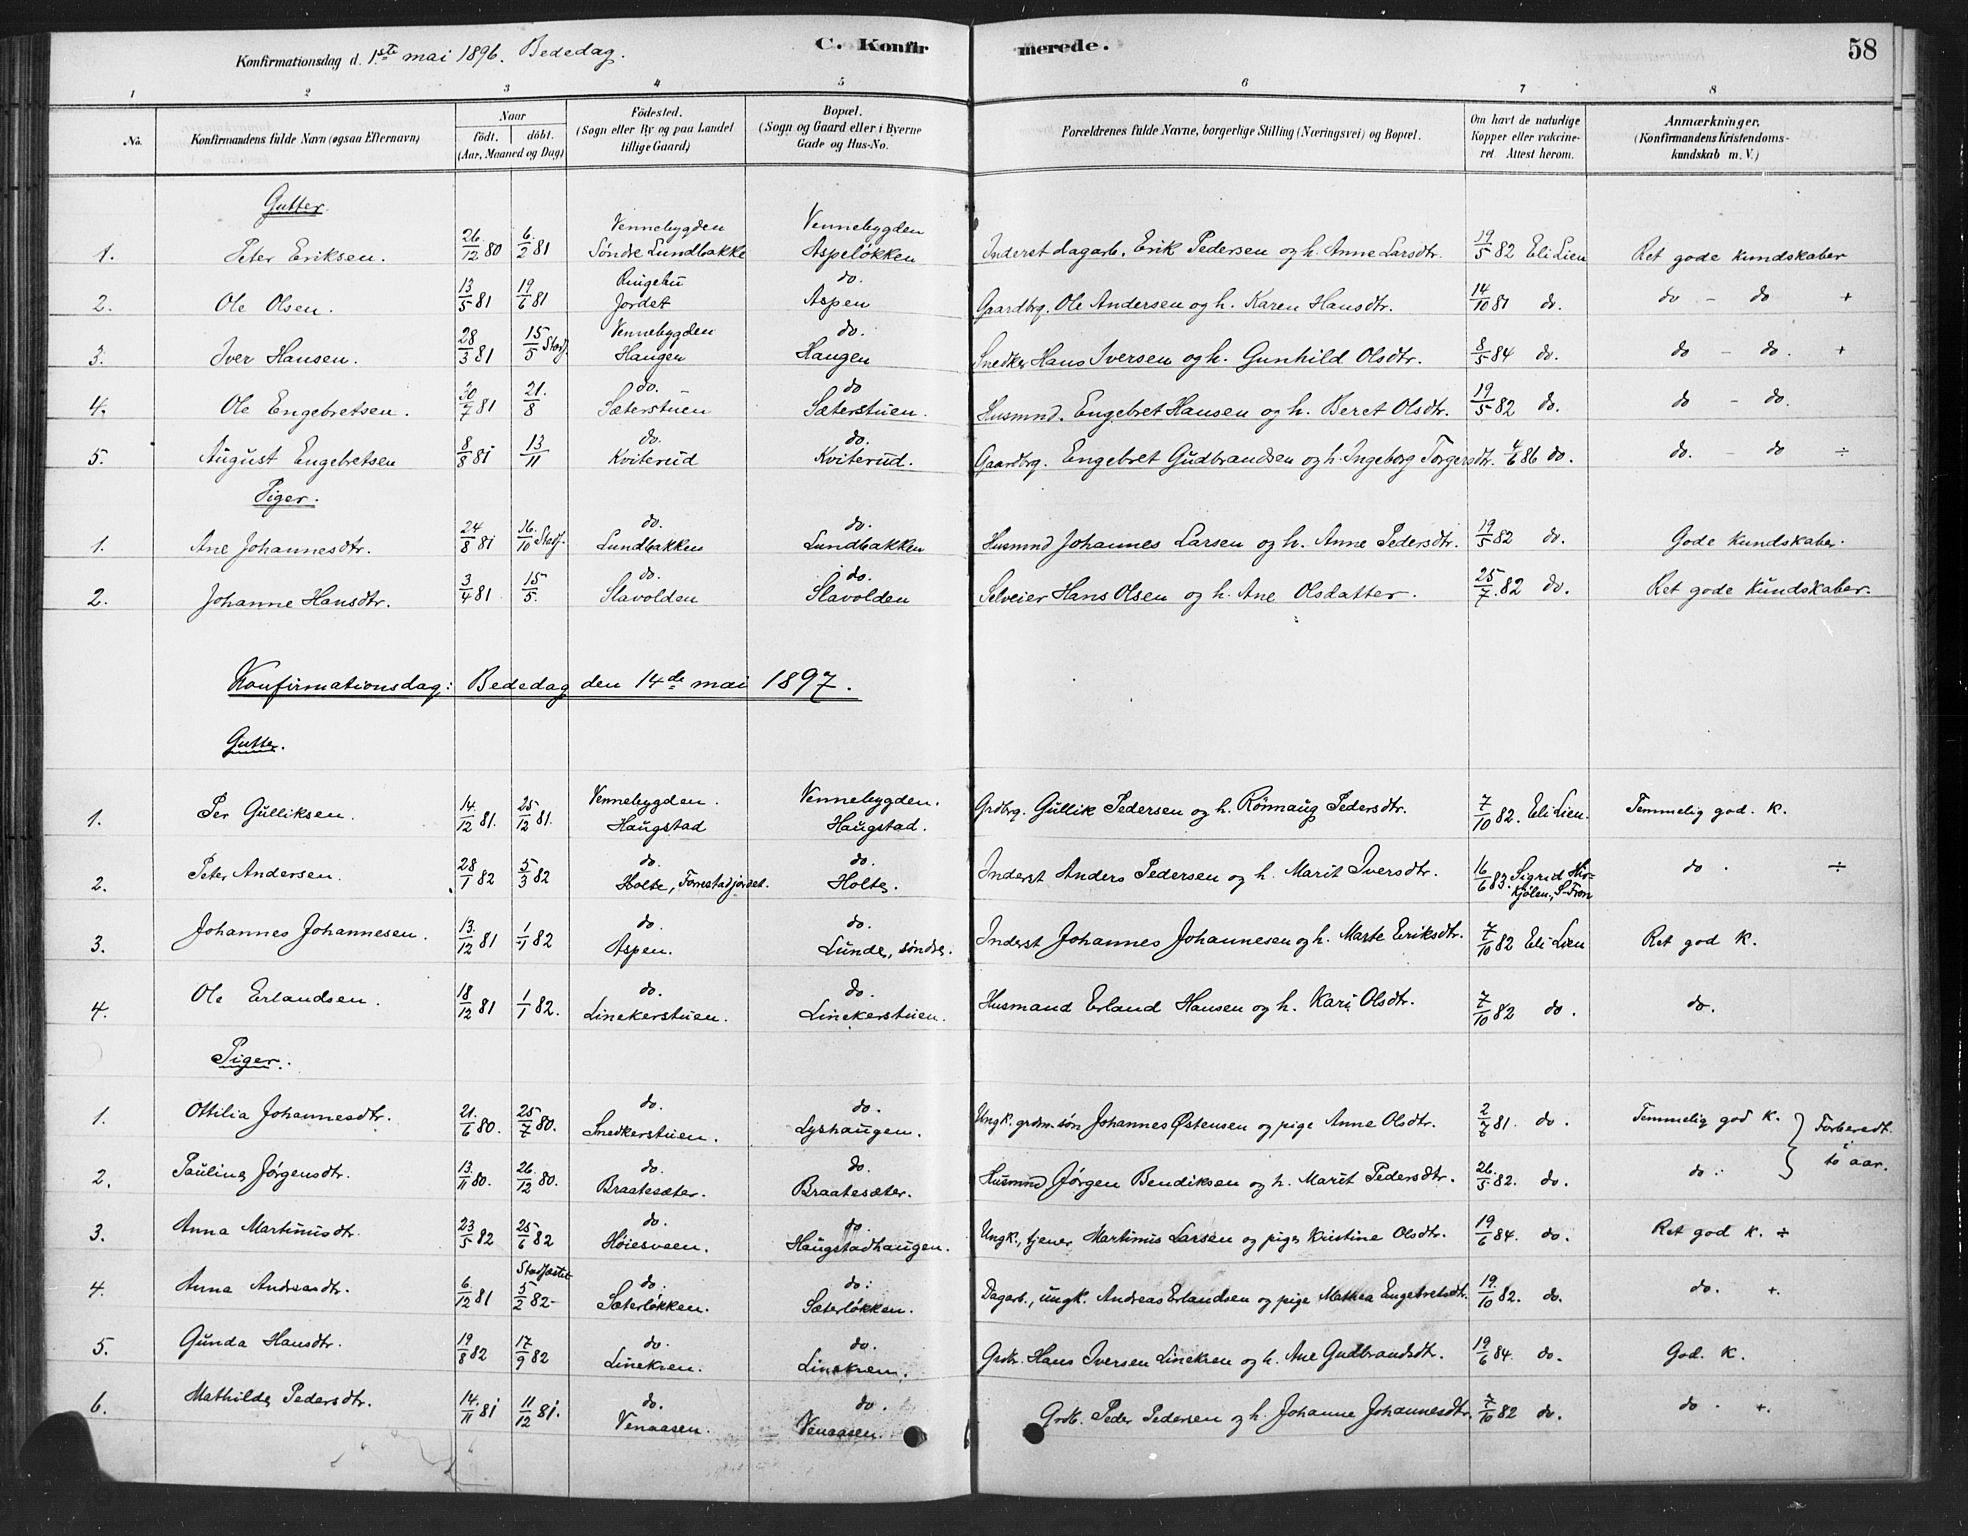 Konfirmationsdag d. 1ste mai 1896. Bededag.
C. Konfirmerede.
58
1 2 3 4 5 6 7 8
No.
Konfirmandens fulde Navn (ogsaa Efternavn)
Naar
født. døbt.
(Aar, Maaned og Dag)
Fødested.
(Sogn eller By og paa Landet
tillige Gaard)
Bopæl.
(Sogn og Gaard eller i Byerne
Gade og Hus-No.
Forældrenes fulde Navne, borgerlige Stilling (Næringsvei) og Bopæl.
Om havt de naturlige
Kopper eller vakcine-
ret. Attest herom.
Anmærkninger.
(Konfirmandens Kristendoms-
kundskab m. V.)
Gutter.
1. Peter Eriksen. 26/12 80 6/2 81 Vennebygden Søndre Lundbakke Vennebygden Aspeløkken Inderst dagarb. Erik Pedersen og h. Anne Larsdtr. 19/5 82 Eli Lien Ret gode kundskaber
2. Ole Olsen. 13/5 81 19/6 81 Ringebu Jordet do. Aspen Gaardbrg. Ole Andersen og h. Karen Hansdtr. 14/10 81 do. do - do +
3. Iver Hansen. 28/3 81 15/5 Stadf. Vennebygden Haugen do. Haugen Snedker Hans Iversen og h. Gunhild Olsdtr. 8/5 84 do. do - do. +
4. Ole Engebretsen. 30/7 81 21/8 do. Sæterstuen do Sæterstuen. Husmnd. Engebret Hansen og h. Beret Olsdtr. 19/5 82 do. do - do.
5. August Engebretsen 8/8 81 13/11 do. Kviterud do. Kviterud. Gaardbrg. Engebret Gudbrandsen og h. Ingeborg Torgersdtr. 4/6 86 do. do. - do ÷
Piger.
1. Ane Johannesdtr. 24/8 81 16/10 Stadf. do. Lundbakken do. Lundbakken Husmnd Johannes Larsen og h. Anne Pedersdtr. 19/5 82 do. Gode kundskaber.
2. Johanne Hansdtr. 3/4 81 15/5. do. Slavolden do. Slavolden Selveier Hans Olsen og h. Ane Olsdatter. 25/7. 82 do. Ret gode kundskaber.
Konfirmationsdag: Bededag den 14de mai 1897.
Gutter.
1. Per Gulliksen. 14/12 81. 25/12 81. Vennebygden. Haugstad Vennebygden. Haugstad. Grdbrg. Gullik Pedersen og h. Rønnaug Pedersdtr. 7/10 82. Eli Lien. Temmelig god. K.
2. Peter Andersen. 28/1 82 5/3 82 do. Holte, Fornestadjordet. do. Holte. Inderst Anders Pedersen og h. Marit Iversdtr. 16/6 83. Sigrid Kjølen, S-Fron do. ÷
3. Johannes Johannesen. 13/12 81 1/1 82 do. Aspen. do. Lunde, søndre. Inderst Johannes Johannesen og h. Marte Eriksdtr. 7/10 82 Eli Lien Ret god K.
4. Ole Erlandsen. 18/12 81 1/1 82. do. Linekerstuen. do. Linekerstuen. Husmand Erland Hansen og h. Kari Olsdtr. 7/10 82 do. do.
Piger.
1. Ottilia Johannesdtr. 21/6 80. 25/7 80. do. Snedkerstuen. do. Lyshaugen. Ungk. grdm. søn Johannes Østensen og pige Anne Olsdtr. 2/6 81. do. Temmelig god K. } Forberedt
2. Pauline Jørgensdtr. 13/11 80. 26/12 80. do. Braatesæter. do. Braatesæter. Husmnd Jørgen Bendiksen og h. Marit Pedersdtr. 26/5 82. do. do. } i to aar.
3. Anna Martinusdtr. 23/5 82 25/6 82 do. Høiesveen. do. Haugstadhaugen. Ungk., tjener Martinus Larsen og pige Kristine Olsdtr. 19/6 84. do. Ret god K. ÷
4. Anna Andreasdtr. 6/12 81 Stadfæstet 5/2 82- do. Sæterløkken. do. Sæterløkken. Dagarb., ungk. Andreas Erlandsen og pige Mathea Engebretsdtr. 19/10 82. do. do. +.
5. Gunda Hansdtr. 19/8 82 17/9 82 do. Linekren. do. Linekren. Grdbr. Hans Iversen Linekren og h. Ane Gudbrandsdtr. 19/6 84. do. God. K.
6. Mathilde Pedersdtr. 14/11 81 11/12 81. do. Venaasen. do. Venaasen. Grdb. Peder Pedersen og h. Johanne Johannesdtr. 7/10 82 do. do. +.